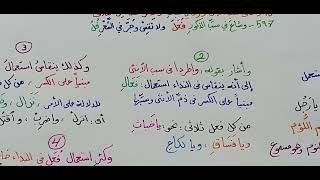 597 - وشاع في سبّ الذكور فُعَلُ ولا تَقِسْ وجُرَّ في الشِّعْرِ فُلُ
③
وكذلك ينقاس استعمال
مبنياً على الكسر من كل
للدلالة على الأمر، نحو: نزالِ، و
أي: انزلْ، واضربْ، واقتلْ
④
وكثر استعمال فُعَل في النداء خا
②
وأشار بقوله: واطردا في سب الأنثى
إلى أنه ينقاس في النداء استعمال: فَعَالِ
مبنياً على الكسر في ذمّ الأنثى وسبّها
من كل فعل ثلاثي، نحو: يا خَباثِ
ويا فَساقِ، ويا لَكاعِ
تعمل
يا رجل
اللُّؤم
وهو مسموع